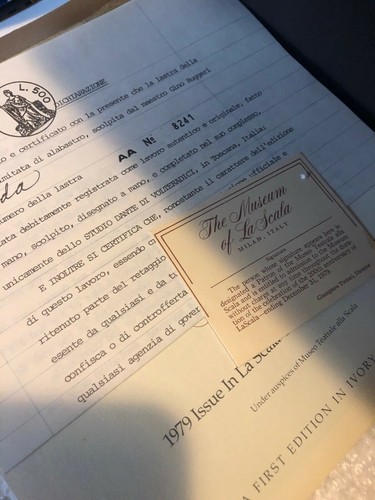 L. 500
DICHIARAZIONE
o e certificato con la presente che la lastra della
limitata di alabastro, scolpita dal maestro Gino Ruggeri
da
numero della lastra AA № 8241
ata debitamente registrata come lavoro autentico e originale, fatto
mano, scolpito, disegnato a mano, e completato nel suo complesso,
unicamente dello STUDIO DANTE DI VOLTERADICI, in Toscana, Italia;
E INOLTRE SI CERTIFICA CHE, nonostante il carattere dell'edizione
ufficiale e
di questo lavoro, essendo
ritenuto parte del retaggio
esente da qualsiasi e da
confisca o di controfferta
qualsiasi agenzia di gover
The Museum
of La Scala
MILAN, ITALY
Signature
The person whose signature appears here is
designated a Patron of the Museum of La
Scala and is entitled to admittance to the Museum
without charge at any time throughout the dura-
tion of the celebration of the 200th anniversary of
LaScala—ending December 31, 1979.
Giampiero Tintori, Director
1979 Issue In La Scala
Under auspices of Museo Teatrale alla Scala
A FIRST EDITION IN IVORY